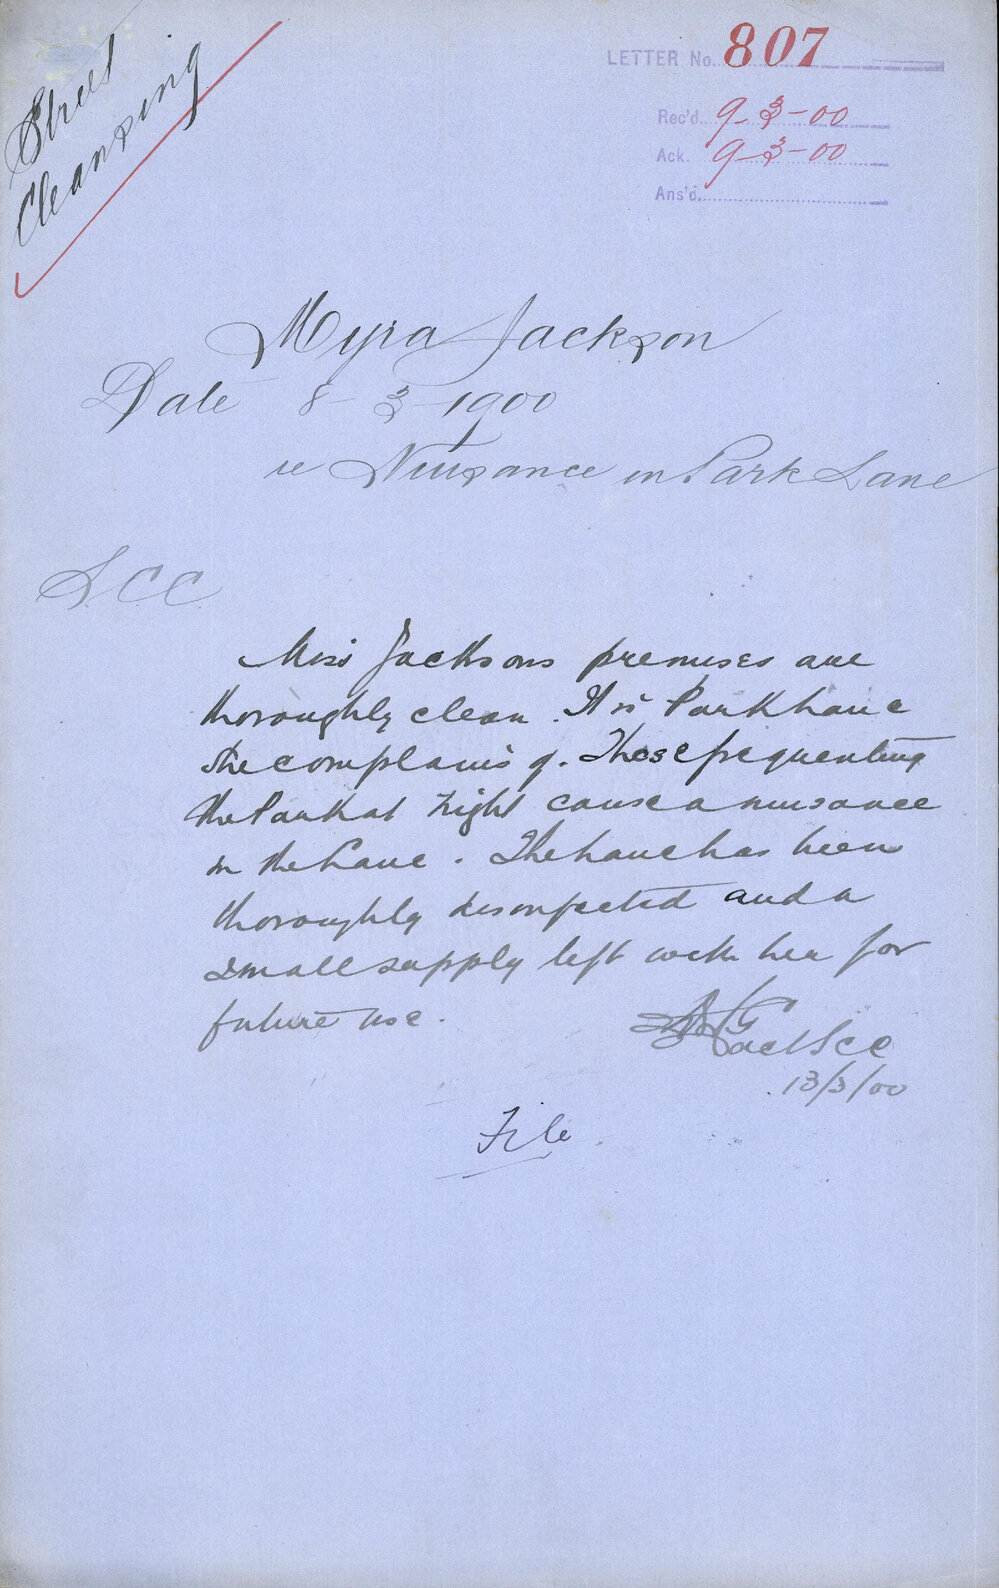 Street
Cleansing
LETTER No. 807
Rec'd. 9-3-00
Ack. 9-3-00
Ans'd.
Myra Jackson
Date 8-3-1900
re Nuisance in Park Lane
S.C.C
Miss Jacksons premises are
thoroughly clean. It is Park Lane
she complains of. Those frequenting
the Park at night cause a nuisance
in the Lane. The Lane has been
thoroughly disinfected and a
small supply left with her for
future use.
Act SCC
13/3/00
File